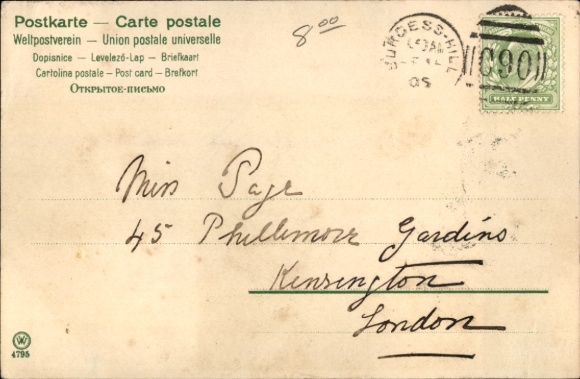 Postkarte — Carte postale
Weltpostverein — Union postale universelle
Dopisnice — Levelező-Lap — Briefkaart
Cartolina postale — Post card — Brefkort
Открытое-письмо
8⁰⁰
BURGESS-HILL
05
C90
HALFPENNY
Miss Page
45 Phillimore Gardens
Kensington
London
W
4795